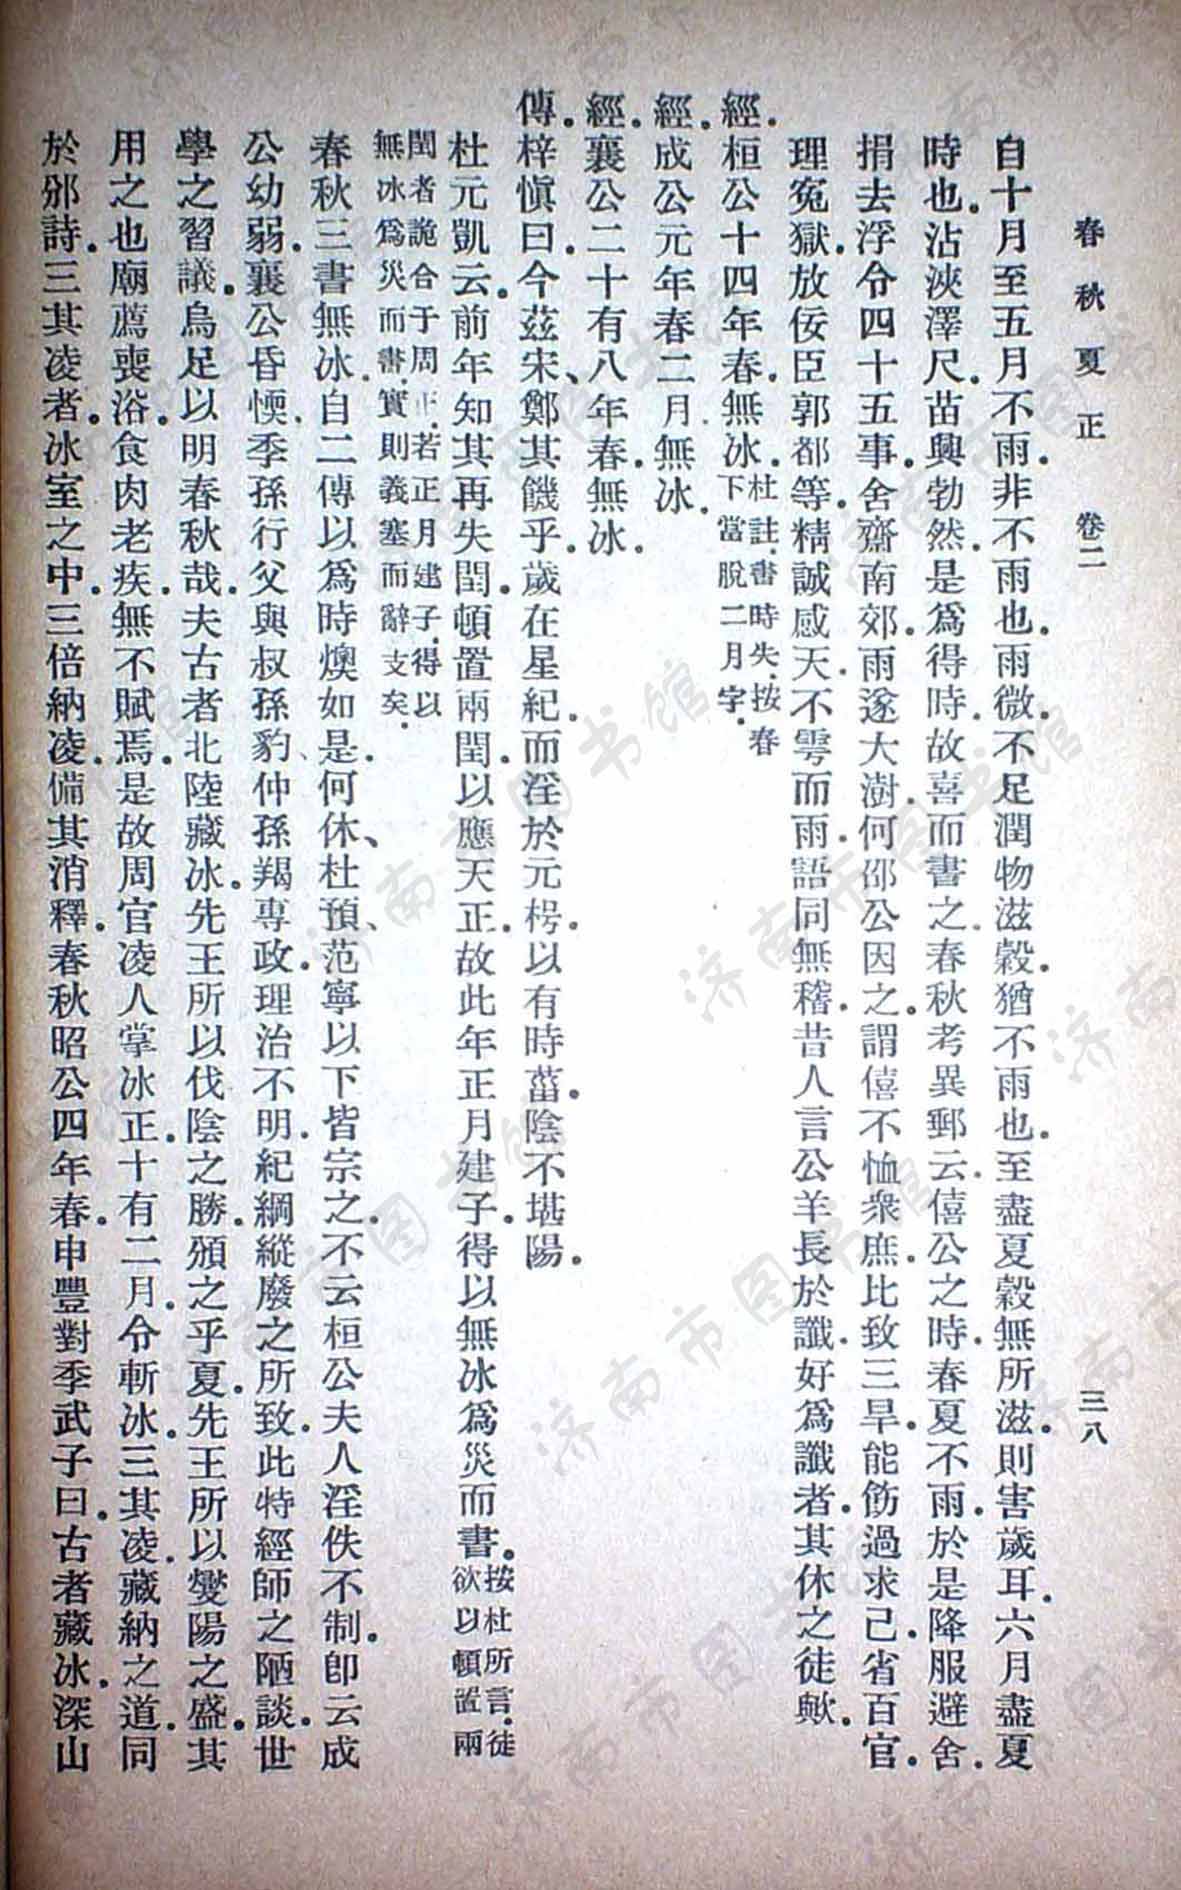 春秋夏正 卷二 三八
自十月至五月不雨.非不雨也.雨微.不足潤物滋穀.猶不雨也.至盡夏穀無所滋.則害歲耳.六月盡夏
時也.沾浹澤尺.苗興勃然.是爲得時.故喜而書之.春秋考異郵云.僖公之時.春夏不雨.於是降服避舍.
捐去浮令四十五事.舍齋南郊.雨遂大澍.何邵公因之.謂僖不恤衆庶.比致三旱.能飭過求己.省百官.
理冤獄.放佞臣郭都等.精誠感天.不雩而雨.語同無稽.昔人言公羊長於讖.好爲讖者.其休之徒歟.
經.桓公十四年春.無冰.杜註.書時失.按春
下當脫二月字.
經.成公元年春二月.無冰.
經.襄公二十有八年春.無冰.
傳.梓愼曰.今茲宋、鄭其饑乎.歲在星紀.而淫於元枵.以有時菑.陰不堪陽.
杜元凱云.前年知其再失閏.頓置兩閏.以應天正.故此年正月建子.得以無冰爲災而書.按杜所言.徒
欲以頓置兩
閏者.詭合于周正.若正月建子.得以
無冰爲災而書.實則義塞而辭支矣.
春秋三書無冰.自二傳以爲時燠如是.何休、杜預、范寧以下皆宗之.不云桓公夫人淫佚不制.卽云成
公幼弱.襄公昏愞.季孫行父與叔孫豹、仲孫羯專政.理治不明.紀綱縱廢之所致.此特經師之陋談.世
學之習議.烏足以明春秋哉.夫古者北陸藏冰.先王所以伐陰之勝.頒之乎夏.先王所以燮陽之盛.其
用之也.廟薦喪浴.食肉老疾.無不賦焉.是故周官凌人掌冰正.十有二月.令斬冰.三其凌.藏納之道.同
於邠詩.三其凌者.冰室之中.三倍納凌.備其消釋.春秋昭公四年春.申豐對季武子曰.古者藏冰.深山